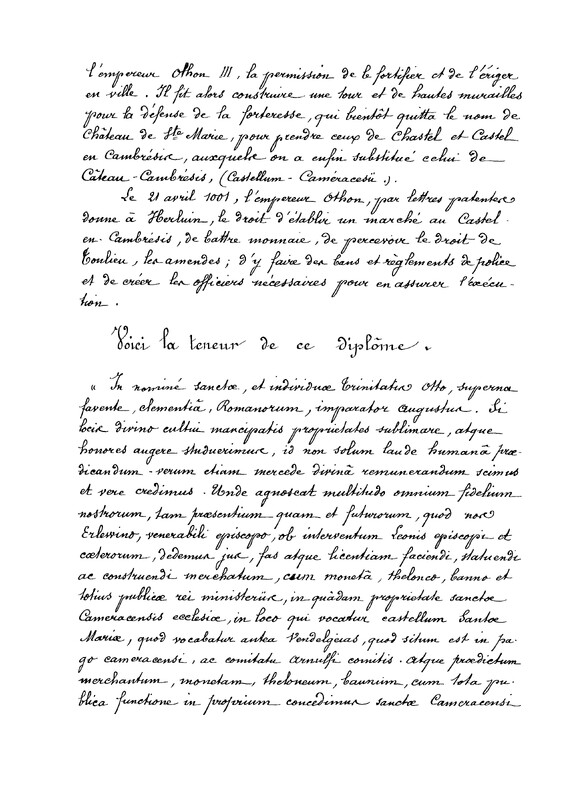 l'empereur Othon III, la permission de le fortifier et de l'ériger
en ville. Il fit alors construire une tour et de hautes murailles
pour la défense de la forteresse, qui bientôt quitta le nom de
Château de Ste Marie, pour prendre ceux de Chastel et Castel
en Cambrésis, auxquels on a enfin substitué celui de
Câteau-Cambrésis, (Castellum-Cameracesii.).
Le 21 avril 1001, l'empereur Othon, par lettres patentes
donne à Herluin, le droit d'établir un marché au Castel-
en-Cambrésis, de battre monnaie, de percevoir le droit de
Tonlieu, les amendes; d'y faire des bans et règlements de police
et de créer les officiers nécessaires pour en assurer l'exécu-
tion.
Voici la teneur de ce diplôme.
« In nominé sanctæ, et individuæ Trinitatis Otto, superna
favente, clementiâ, Romanorum, imparator augustus. Si
locis divino cultui mancipatis proprietates sublimare, atque
honores augere studuerimus, id non solum laude humanâ præ-
dicandum - verum etiam mercede divinâ remunerandum scimus
et vere credimus. Unde agnoscat multitudo omnium fidelium
nostrorum, tam præsentium quam et futurorum, quod nos
Erlewino, venerabili episcopo, ob interventum Leonis episcopi et
cæterorum, dedemus jus, fas atque licentiam faciendi, statuendi
ac construendi merchatum, cum monetâ, thelonco, banno et
totius publicæ rei ministeriis, in quâdam proprietate sanctæ
Cameracensis ecclesiæ, in loco qui vocatur castellum Santæ
Mariæ, quod vocabatur antea Vendelgeias, quod situm est in pa-
go cameracensi, ac comitatu Arnulfi comitis. Atque prædictum
merchantum, monetam, theloneum, baunum, cum tota pu-
blica functione in proprium concedimus sanctæ Cameracensi